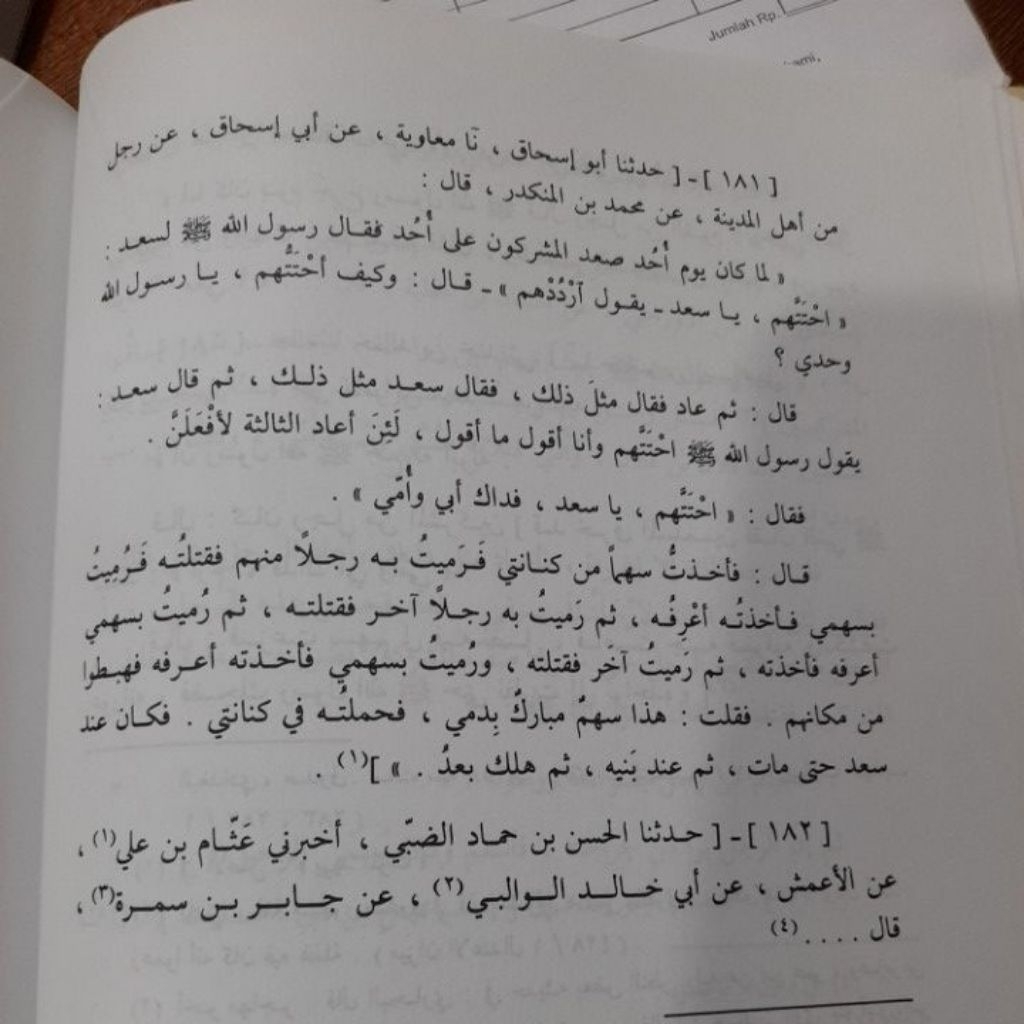 Jumlah Rp.
[ ١٨١ ] - [ حدثنا أبو إسحاق ، نَا معاوية ، عن أبي إسحاق ، عن رجل
من أهل المدينة ، عن محمد بن المنكدر ، قال :
« لما كان يوم أُحُد صعد المشركون على أُحُد فقال رسول الله ﷺ لسعد :
« احْتَتَّهم ، يا سعد ـ يقول آرْدُدْهم » ـ قال : وكيف أحْتَتُّهم ، يا رسول الله
وحدي ؟
قال : ثم عاد فقال مثلَ ذلك ، فقال سعد مثل ذلك ، ثم قال سعد :
يقول رسول الله ﷺ احْتَتَّهم وأنا أقول ما أقول ، لَئِنَ أعاد الثالثة لأفْعَلَنَّ .
فقال : « احْتَتَّهم ، يا سعد ، فداك أبي وأُمّي » .
قال : فأخذتُّ سهماً من كنانتي فَرَميتُ به رجلاً منهم فقتلتُه فَرُمِيتُ
بسهمي فأخذتُه أعْرِفُه ، ثم رَميتُ به رجلاً آخر فقتلته ، ثم رُميتُ بسهمي
أعرفه فأخذته ، ثم رَميتُ آخَر فقتلته ، ورُميتُ بسهمي فأخذته أعرفه فهبطوا
من مكانهم . فقلت : هذا سهمٌ مباركٌ بِدمي ، فحملتُه في كنانتي . فكان عند
سعد حتى مات ، ثم عند بَنيه ، ثم هلك بعدُ . » ](١) .
[ ١٨٢ ] - [ حدثنا الحسن بن حماد الضبّي ، أخبرني عَثّام بن علي(١) ،
عن الأعمش ، عن أبي خالد الوالبي(٢) ، عن جابر بن سمرة(٣) ،
قال ....(٤)